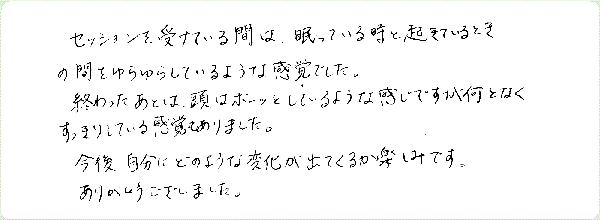 セッションを受けている間は、眠っている時と、起きているとき
の間をゆらゆらしているような感覚でした。
終わったあとは、頭はボーッとしているような感じですが何となく
すっきりしている感覚もありました。
今後、自分にどのような変化が出てくるか楽しみです。
ありがとうございました。